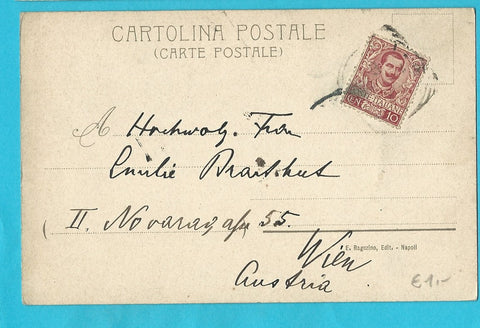 CARTOLINA POSTALE
(CARTE POSTALE)
ITALIANE
CEN 10
A Hochwolg. Frau
Emilie Braithut
II. Novaragasse 55.
Wien
Austria
E. Ragozino, Edit. - Napoli
€1.-